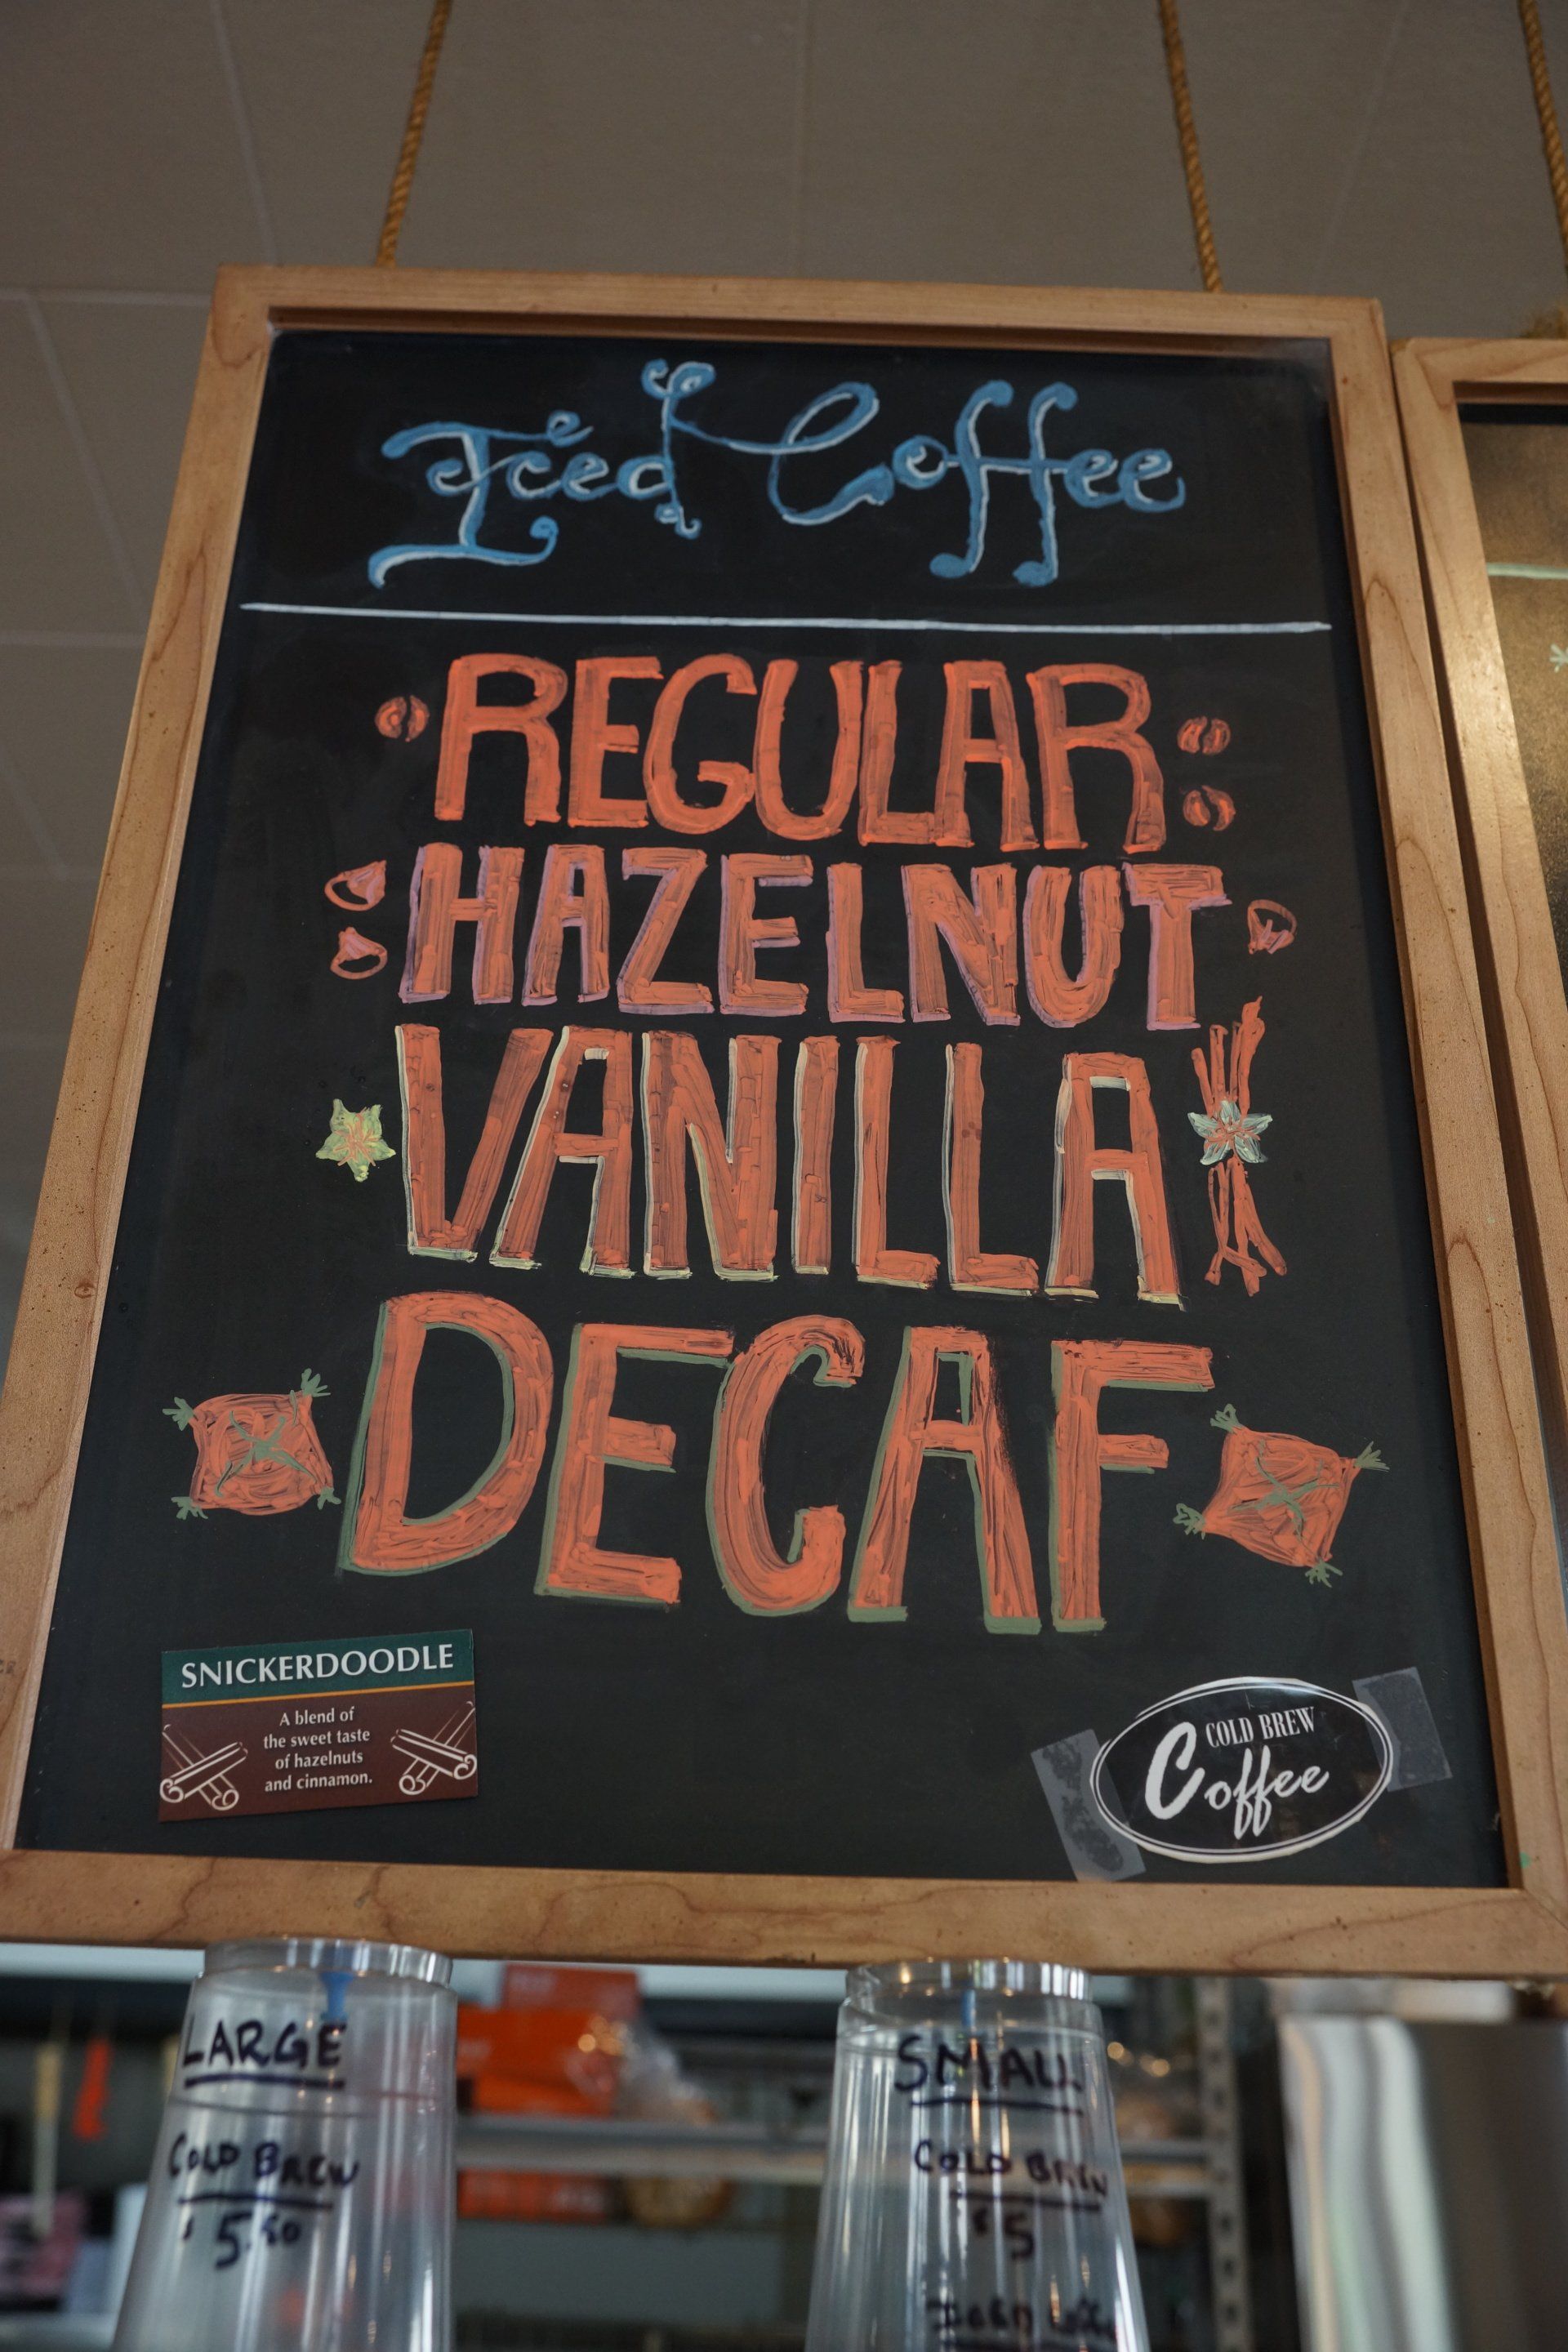 Iced Coffee
REGULAR
HAZELNUT
VANILLA
DECAF
SNICKERDOODLE
A blend of
the sweet taste
of hazelnuts
and cinnamon.
COLD BREW
Coffee
LARGE
COLD BREW
$5.50
SMALL
COLD BREW
$5